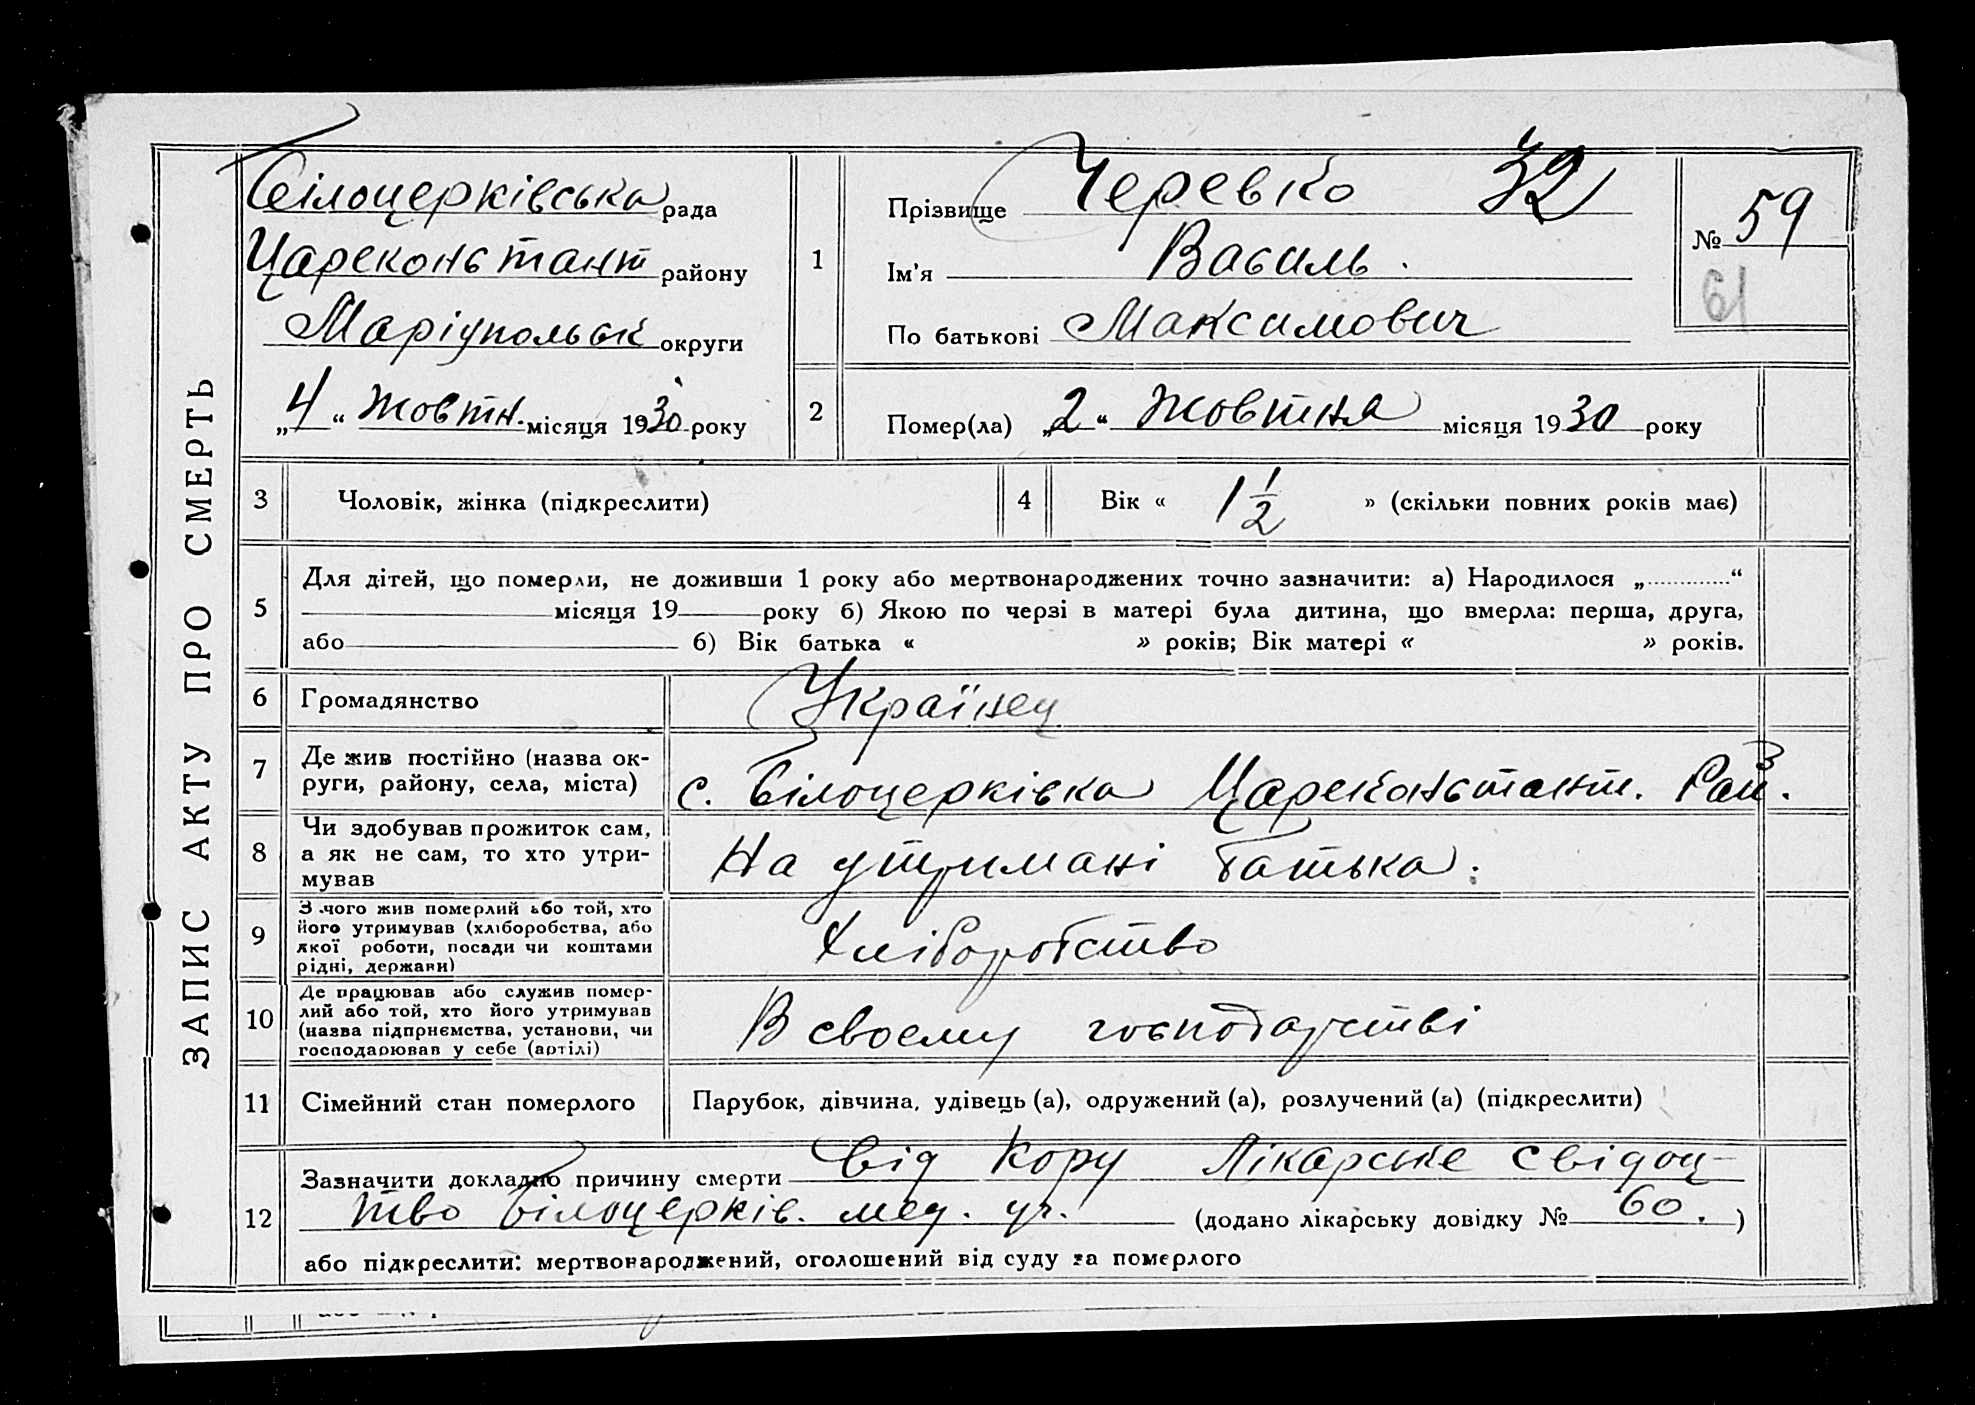 ЗАПИС АКТУ ПРО СМЕРТЬ
Білоцерківська рада
Цареконстант району
Маріупольськ округи
„4“ жовтн. місяця 1930 року
1
Прізвище Черевко 32
Ім'я Василь.
По батькові Максимович
№ 59
61
2
Помер(ла) „2“ жовтня місяця 1930 року
3 Чоловік, жінка (підкреслити)
4 Вік « 1 1/2 » (скільки повних років має)
5
Для дітей, що померли, не доживши 1 року або мертвонароджених точно зазначити: а) Народилося „.............“
місяця 19 року б) Якою по черзі в матері була дитина, що вмерла: перша, друга,
або б) Вік батька « » років; Вік матері « » років.
6 Громадянство Українец
7 Де жив постійно (назва ок-
руги, району, села, міста)
с. Білоцерківка Цареконстант. Рай.
8 Чи здобував прожиток сам,
а як не сам, то хто утри-
мував
На утримані батька.
9 З чого жив померлий або той, хто
його утримував (хліборобства, або
якої роботи, посади чи коштами
рідні, держави)
Хліборобство
10 Де працював або служив помер-
лий або той, хто його утримував
(назва підприємства, установи, чи
господарював у себе (артілі)
В своему господарстві
11 Сімейний стан померлого
Парубок, дівчина, удівець (а), одружений (а), розлучений (а) (підкреслити)
12
Зазначити докладно причину смерти Від Кору Лікарське свідоц-
тво Білоцерків. мед. уч. (додано лікарську довідку № 60.)
або підкреслити: мертвонароджений, оголошений від суду за померлого